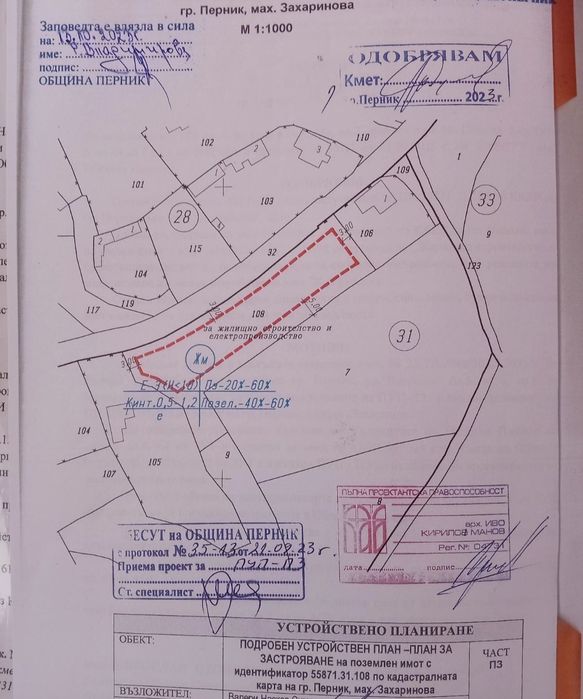 гр. Перник, мах. Захаринова
М 1:1000
Заповедта е влязла в сила
на: 13.10.2023г
име:
подпис:
ОБЩИНА ПЕРНИК
ОДОБРЯВАМ
Кмет:
гр.Перник 2023.г.
102
110
1
2
3
101
103
109
1
33
28
1
106
9
2
1
115
32
123
104
3,00
117
119
3,00
108
5,00
за жилищно строителство и
електропроизводство
31
3,00
Жм
7
Е-3(Н<10) Пз-20%-60%
Кинт.0,5-1,2 Позел.-40%-60%
е
104
1
105
9
107
8
ПЪЛНА ПРОЕКТАНТСКА ПРАВОСПОСОБНОСТ
арх. ИВО
КИРИЛОВ МАНОВ
Рег. №
дата подпис
ЕСУТ на ОБЩИНА ПЕРНИК
с протокол № 35-13 от 31.08.23г.
Приема проект за ПУП-ПЗ
Ст. специалист
УСТРОЙСТВЕНО ПЛАНИРАНЕ
ОБЕКТ:
ПОДРОБЕН УСТРОЙСТВЕН ПЛАН –ПЛАН ЗА
ЗАСТРОЯВАНЕ на поземлен имот с
идентификатор 55871.31.108 по кадастралната
карта на гр. Перник, мах. Захаринова
ЧАСТ
ПЗ
ВЪЗЛОЖИТЕЛ: